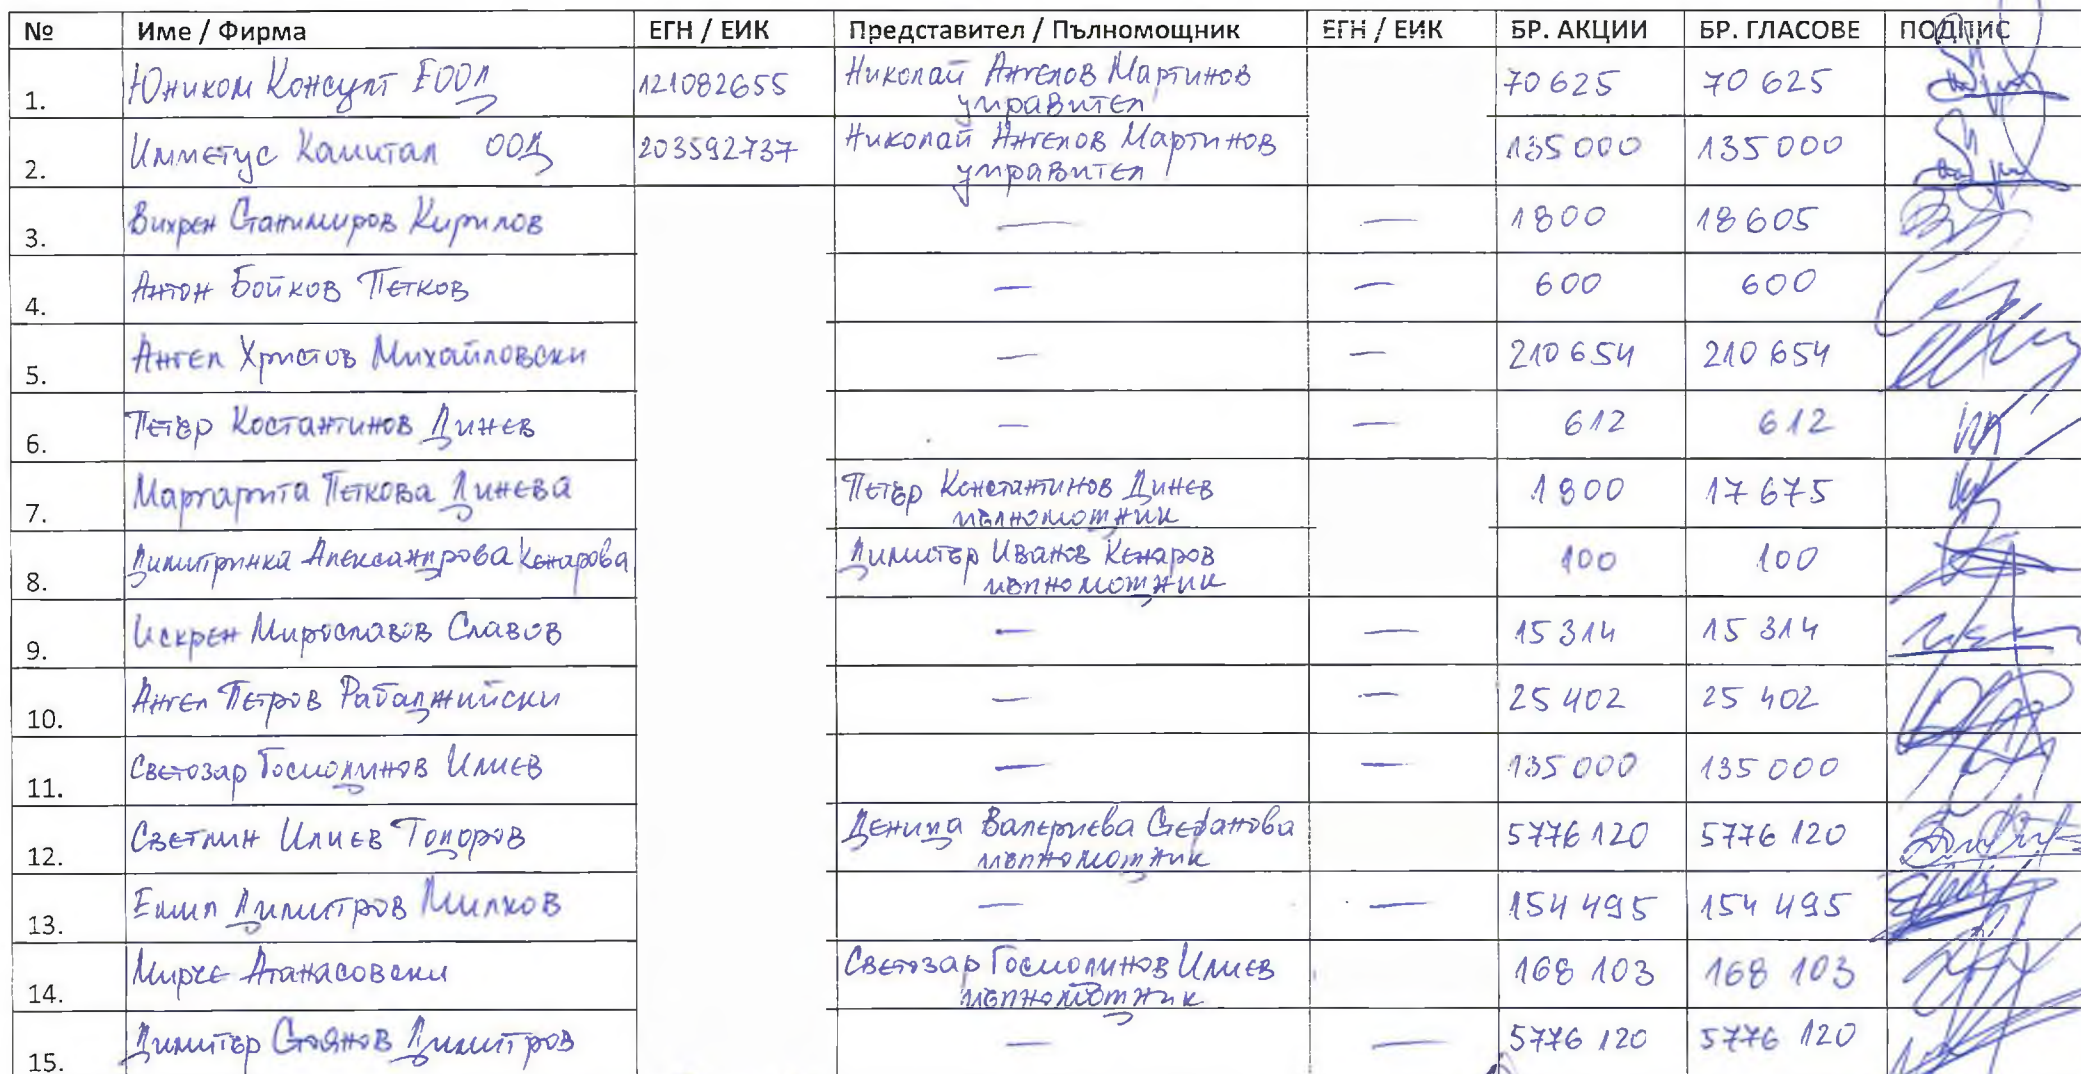 № Име / Фирма ЕГН / ЕИК Представител / Пълномощник ЕГН / ЕИК БР. АКЦИИ БР. ГЛАСОВЕ ПОДПИС
1. Юником Консулт ЕООД 121082655 Николай Ангелов Мартинов 70 625 70 625
управител
2. Имметус Капитал ООД 203592737 Николай Ангелов Мартинов 135 000 135 000
управител
3. Вихрен Станимиров Кирилов — — 1800 18 605
4. Антон Бойков Петков — — 600 600
5. Ангел Христов Михайловски — — 210 654 210 654
6. Петър Костантинов Динев — — 612 612
7. Маргарита Петкова Динева Петър Константинов Динев 1800 17 675
пълномощник
8. Димитринка Александрова Кенарова Димитър Иванов Кенаров 100 100
пълномощник
9. Искрен Мирославов Славов — — 15 314 15 314
10. Ангел Петров Рабаджийски — — 25 402 25 402
11. Светозар Господинов Илиев — — 135 000 135 000
12. Светлин Илиев Тодоров Деница Валериева Стефанова 5776 120 5776 120
пълномощник
13. Емил Димитров Милков — — 154 495 154 495
14. Мирче Атанасовски Светозар Господинов Илиев 168 103 168 103
пълномощник
15. Димитър Стоянов Димитров — — 5776 120 5776 120